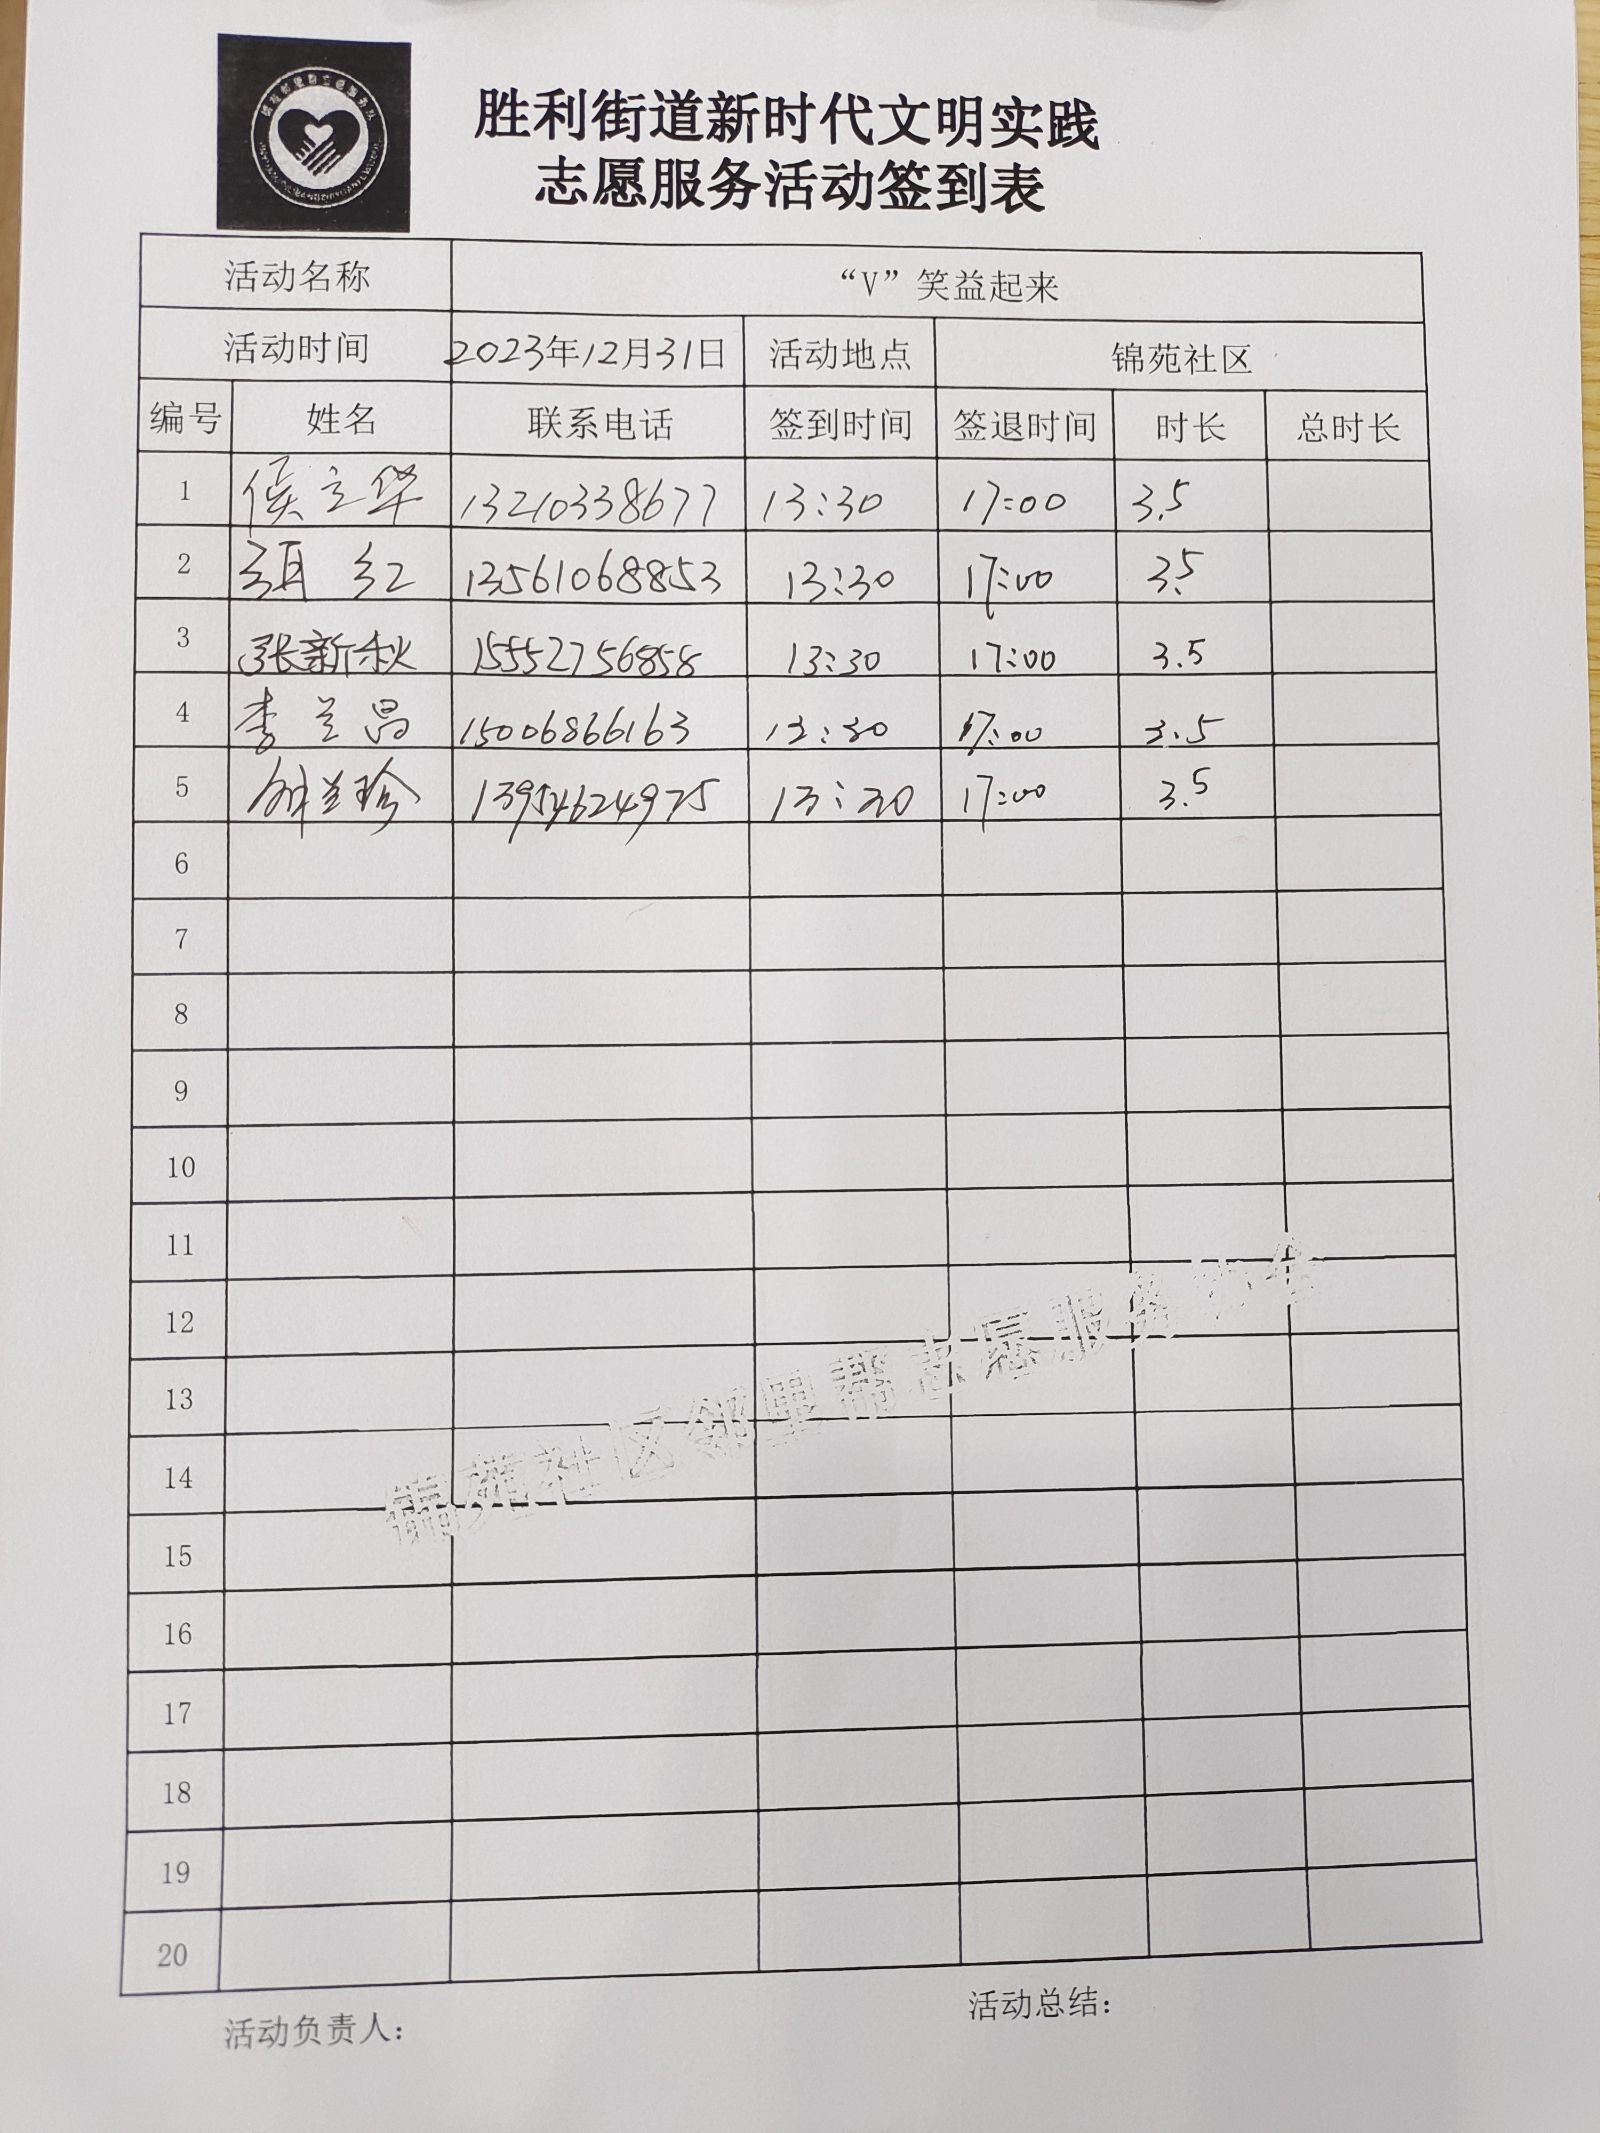 胜利街道新时代文明实践
志愿服务活动签到表
活动名称 “V”笑益起来
活动时间 2023年12月31日 活动地点 锦苑社区
编号 姓名 联系电话 签到时间 签退时间 时长 总时长
1 侯立华 13210338677 13:30 17:00 3.5
2 红 13561068853 13:30 17:00 3.5
3 张新秋 15552756858 13:30 17:00 3.5
4 李兰昌 15006866163 13:30 17:00 3.5
5 兰珍 13954624975 13:30 17:00 3.5
6
7
8
9
10
11
12
13
14
15
16
17
18
19
20
锦苑社区邻里帮志愿服务协会
活动负责人：
活动总结：